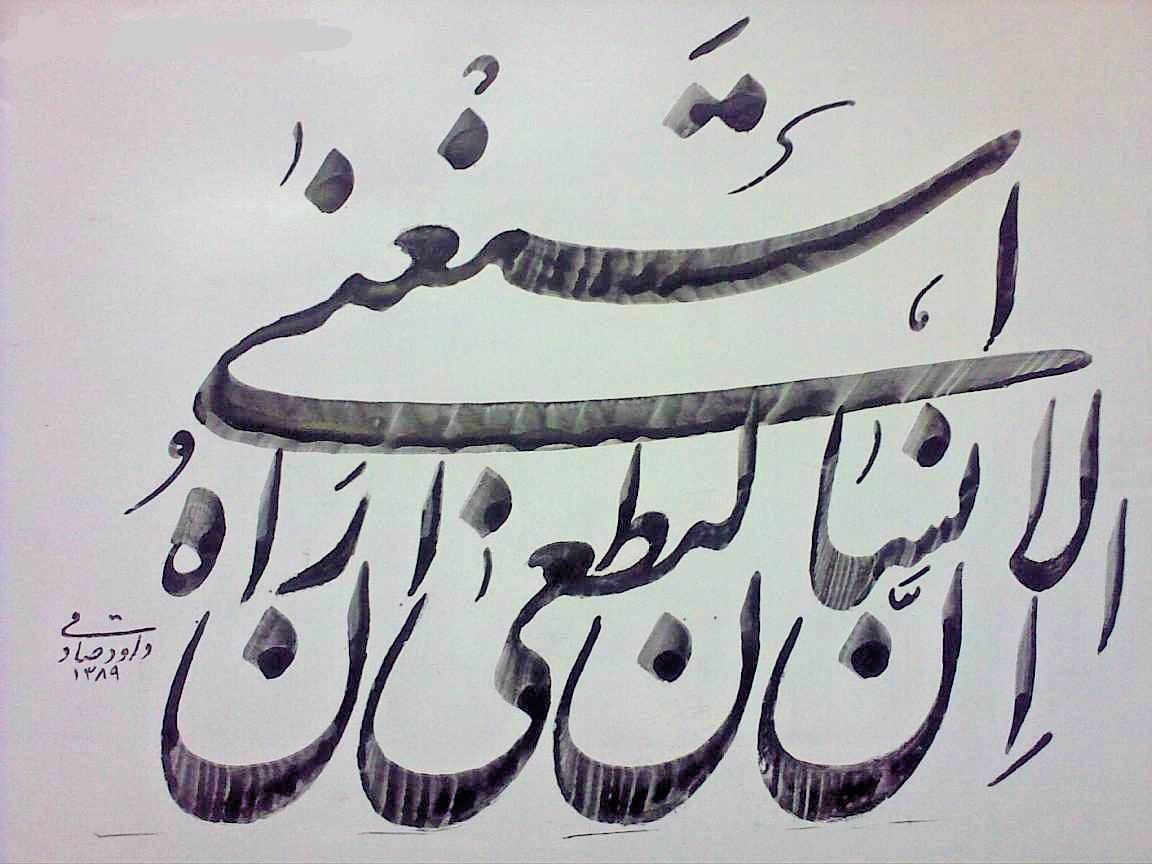 اِنَّ الانسان لیطغیٰ ان رَاهُ
استَغنیٰ
داود صادقی
۱۳۸۹